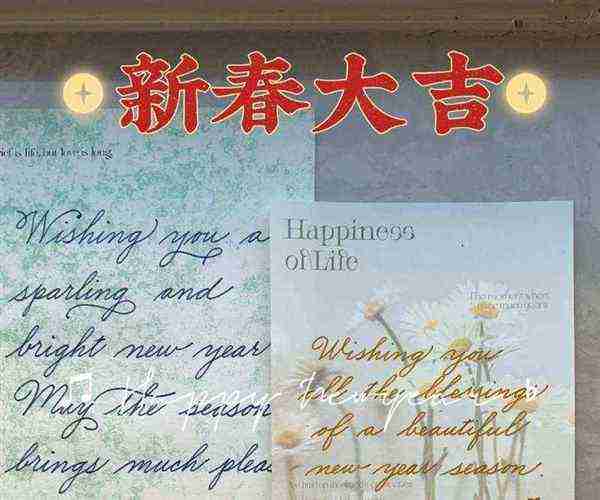 新春大吉
ief is life, but love is long,
Wishing you a
sparling and
bright new year
May the season
brings much pleas
Happiness
of Life
The moment when
Wishing you
all the blessings
of a beautiful
new year season.